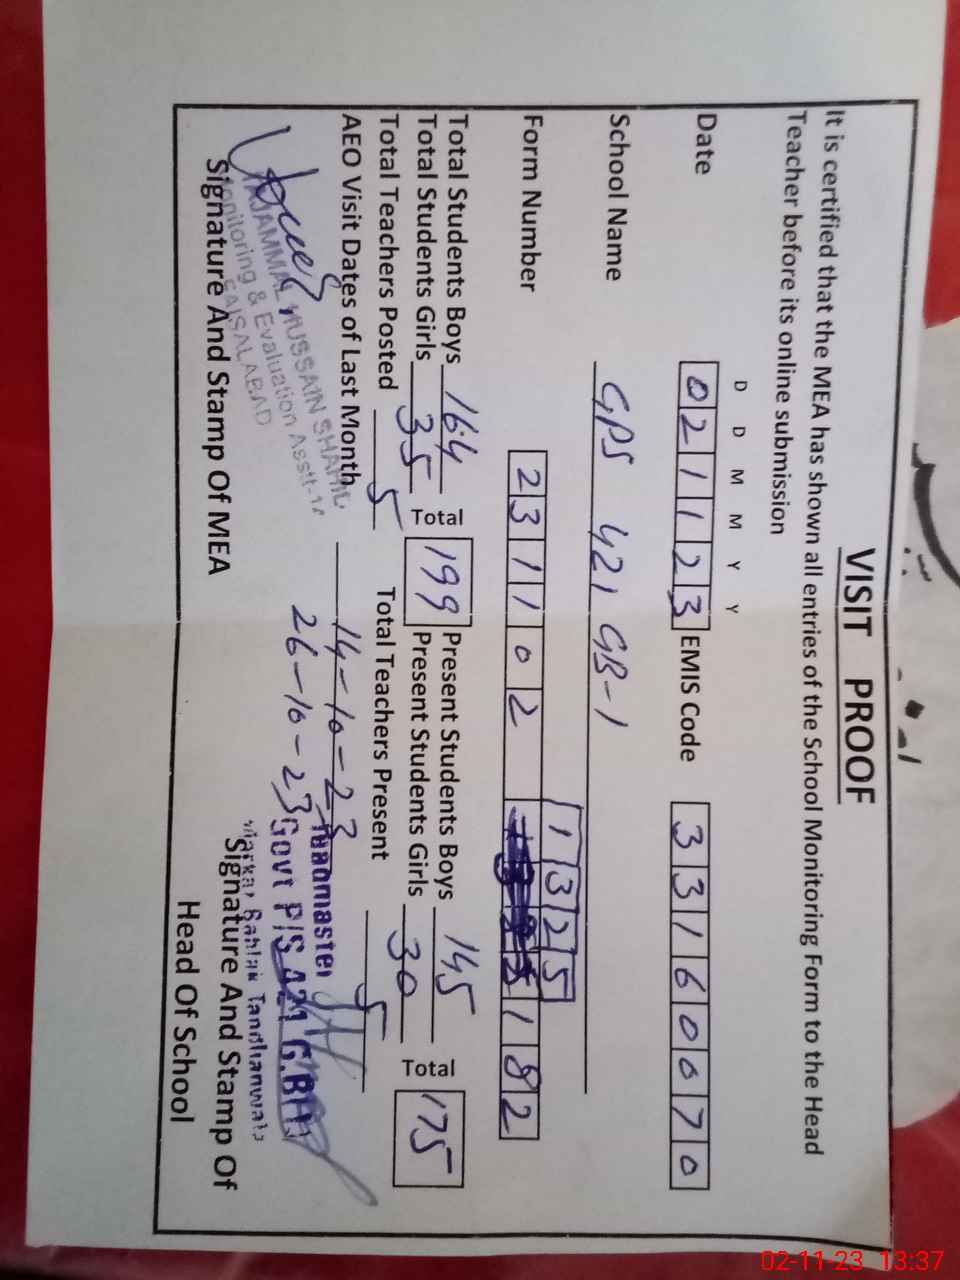 VISIT PROOF
It is certified that the MEA has shown all entries of the School Monitoring Form to the Head
Teacher before its online submission
D D M M Y Y
Date 0 2 1 1 2 3 EMIS Code 3 3 1 6 0 0 7 0
School Name GPS 421 GB-1
1 3 2 5
Form Number 2 3 1 1 0 2 1 8 2
Total Students Boys 164 Total 199 Present Students Boys 145 Total 175
Total Students Girls 35 Present Students Girls 30
Total Teachers Posted 5 Total Teachers Present 5
AEO Visit Dates of Last Month 14-10-23
26-10-23
TAJAMMAL HUSSAIN SHAHID
Monitoring & Evaluation Asstt-14
FAISALABAD
Signature And Stamp Of MEA
Headmaster
Govt P/S 421 G.B(1)
Markaz Bahlak Tandlianwala
Signature And Stamp Of
Head Of School
02-11-23 13:37